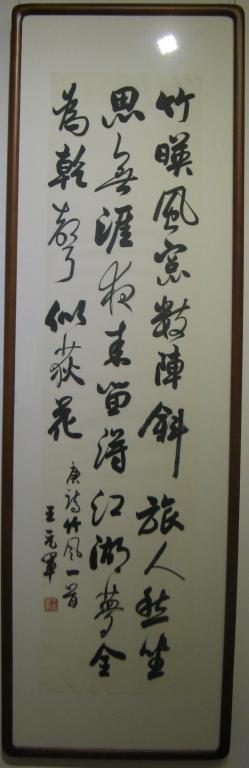 竹暎風窓數陣斜旅人愁坐
思無涯夜来留得江湖夢全
為乾聲似荻花
唐詩竹風一首
王元軍